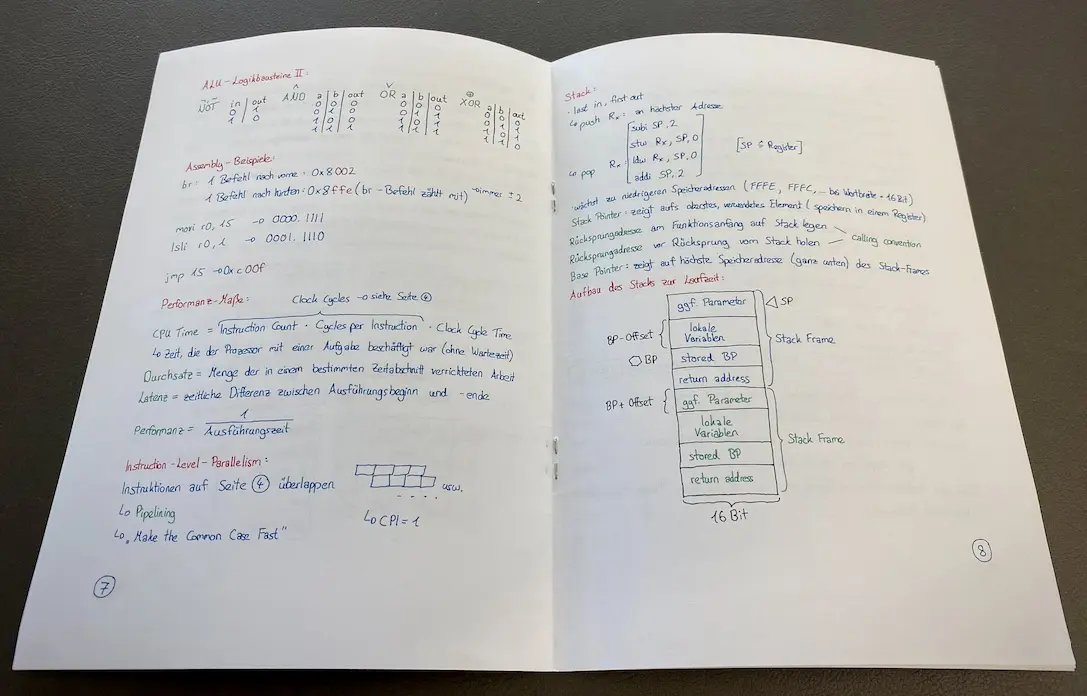 ALU-Logikbausteine II:
NOT in | out
0 | 1
1 | 0
∧
AND a | b | out
0 | 0 | 0
0 | 1 | 0
1 | 0 | 0
1 | 1 | 1
∨
OR a | b | out
0 | 0 | 0
0 | 1 | 1
1 | 0 | 1
1 | 1 | 1
⊕
XOR a | b | out
0 | 0 | 0
0 | 1 | 1
1 | 0 | 1
1 | 1 | 0
Assembly-Beispiele:
br: 1 Befehl nach vorne: 0x8002
1 Befehl nach hinten: 0x8ffe (br-Befehl zählt mit) → immer ±2
movi r0, 15 → 0000.1111
lsli r0, 1 → 0001.1110
jmp 15 → 0xc00f
Performanz-Maße: Clock Cycles → siehe Seite ④
CPU Time = Instruction Count · Cycles per Instruction · Clock Cycle Time
↳ Zeit, die der Prozessor mit einer Aufgabe beschäftigt war (ohne Wartezeit)
Durchsatz = Menge der in einem bestimmten Zeitabschnitt verrichteten Arbeit
Latenz = zeitliche Differenz zwischen Ausführungsbeginn und -ende
Performanz = 1 / Ausführungszeit
Instruction-Level-Parallelism:
Instruktionen auf Seite ④ überlappen usw.
↳ Pipelining
↳ CPI = 1
↳ „Make the Common Case Fast"
7
Stack:
· last in, first out
↳ push Rx: an höchster Adresse
subi SP, 2
stw Rx, SP, 0
[SP ≙ Register]
↳ pop Rx:
ldw Rx, SP, 0
addi SP, 2
· wächst zu niedrigeren Speicheradressen (FFFE, FFFC, ... bei Wortbreite = 16 Bit)
Stack Pointer: zeigt aufs oberstes, verwendetes Element (speichern in einem Register)
Rücksprungadresse am Funktionsanfang auf Stack legen
Rücksprungadresse vor Rücksprung vom Stack holen
calling convention
Base Pointer: zeigt auf höchste Speicheradresse (ganz unten) des Stack-Frames
Aufbau des Stacks zur Laufzeit:
ggf. Parameter
SP
BP-Offset
lokale
Variablen
Stack Frame
BP
stored BP
return address
BP+Offset
ggf. Parameter
lokale
Variablen
Stack Frame
stored BP
return address
16 Bit
8